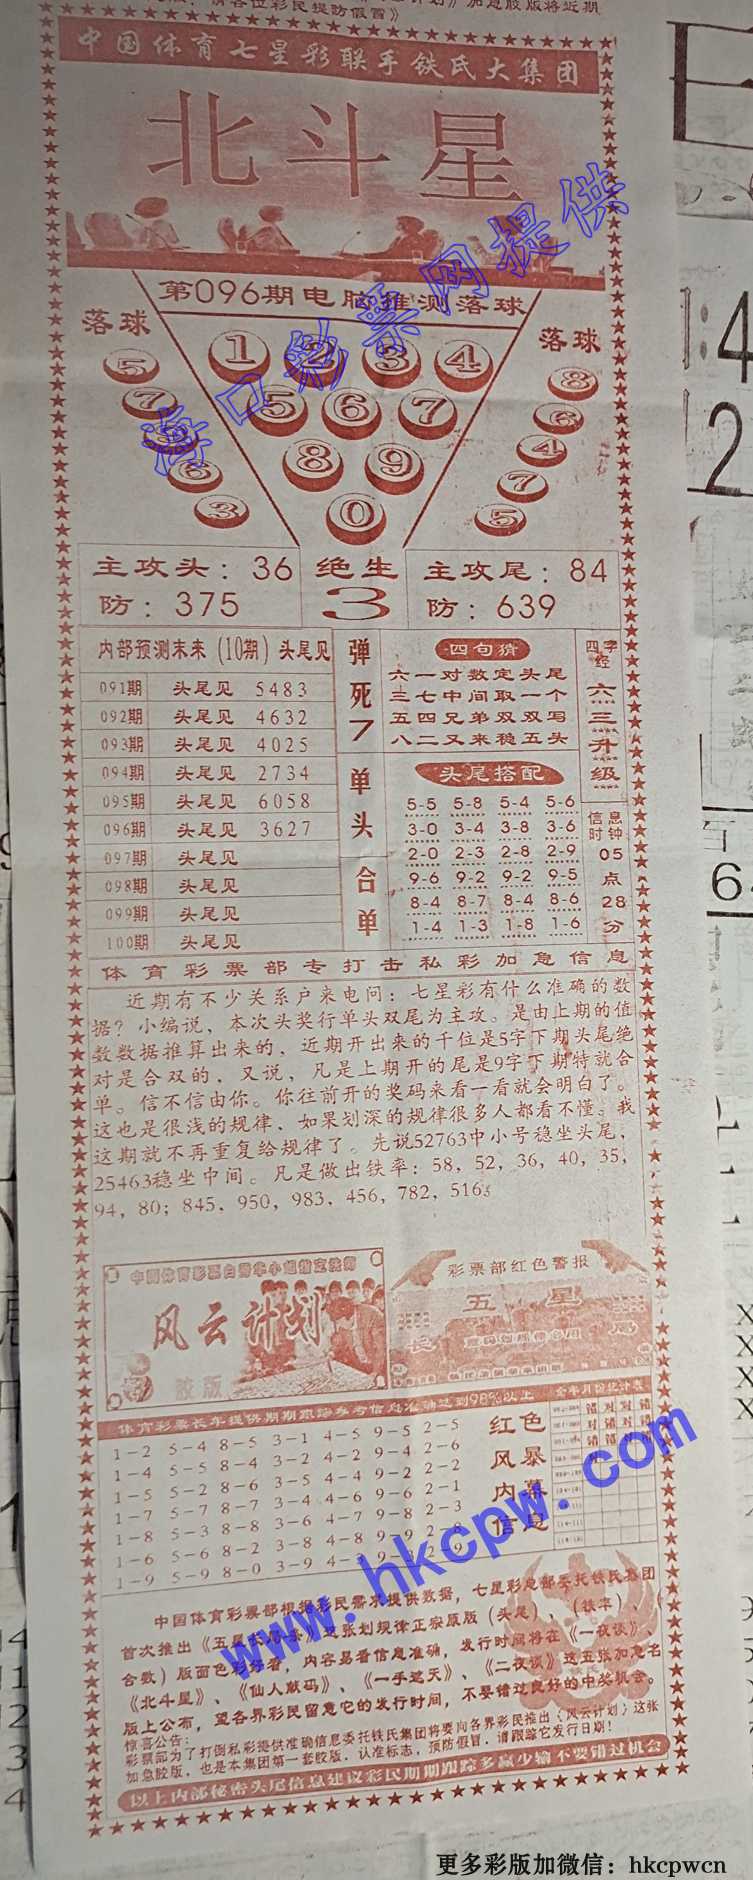 请各位彩民提防假冒》
加急胶版将近期
中国体育七星彩联手铁氏大集团
北斗星
第096期电脑推测落球
落球
5
7
6
3
1 2 3 4
5 6 7
8 9
0
落球
8
6
4
7
5
主攻头：36
防：375
绝生
3
主攻尾：84
防：639
内部预测末来（10期）头尾见
091期 头尾见 5483
092期 头尾见 4632
093期 头尾见 4025
094期 头尾见 2734
095期 头尾见 6058
096期 头尾见 3627
097期 头尾见
098期 头尾见
099期 头尾见
100期 头尾见
弹死7
单头
合单
四句猜
六一对数定头尾
三七中间取一个
五四兄弟双双写
八二又来稳五头
头尾搭配
5-5 5-8 5-4 5-6
3-0 3-4 3-8 3-6
2-0 2-3 2-8 2-9
9-6 9-2 9-2 9-5
8-4 8-7 8-4 8-6
1-4 1-3 1-8 1-6
四字经
六三升级
信息时钟
05点28分
体育彩票部专打击私彩加急信息
近期有不少关系户来电问：七星彩有什么准确的数
据？小编说，本次头奖行单头双尾为主攻。是由上期的值
数数据推算出来的，近期开出来的千位是5字下期头尾绝
对是合双的，又说，凡是上期开的尾是9字下期特就合
单。信不信由你。你往前开的奖码来看一看就会明白了。
这也是很浅的规律，如果划深的规律很多人都看不懂。我
这期就不再重复给规律了。先说52763中小号稳坐头尾，
25463稳坐中间。凡是做出铁率：58，52，36，40，35，
94，80；845，950，983，456，782，516；
风云计划
胶版
彩票部红色警报
五星
长 局
体育彩票长年提供期期跟踪参考信息准确达到98%以上
1-2 5-4 8-5 3-1 4-5 9-5 2-5
1-4 5-5 8-4 3-2 4-2 9-4 2-6
1-5 5-2 8-6 3-5 4-4 9-2 2-2
1-7 5-7 8-7 3-4 4-6 9-6 2-1
1-8 5-3 8-8 3-6 4-7 9-8 2-3
1-6 5-6 8-2 3-8 4-8 9-9 2-8
1-9 5-9 8-0 3-9
红色
风暴
内幕
信息
中国体育彩票部根据彩民需求提供数据，七星彩总部委托铁氏集团
首次推出《五星长局条》这张划规律正宗原版（头尾）、（铁率）、（
合数）版面色彩好看，内容易看信息准确，发行时间将在《一夜谈》、
《北斗星》、《仙人献码》、《一手遮天》、《二夜谈》这五张加急名
版上公布，望各界彩民留意它的发行时间，不要错过良好的中奖机会。
惊喜公告：
彩票部为了打倒私彩提供准确信息委托铁氏集团将要向各界彩民推出《风云计划》这张
加急胶版，也是本集团第一套胶版，认准标志，预防假冒，请跟踪它发行日期！
以上内部秘密头尾信息建议彩民期期跟踪多赢少输不要错过机会
海口彩票网提供
www.hkcpw.com
更多彩版加微信：hkcpwcn